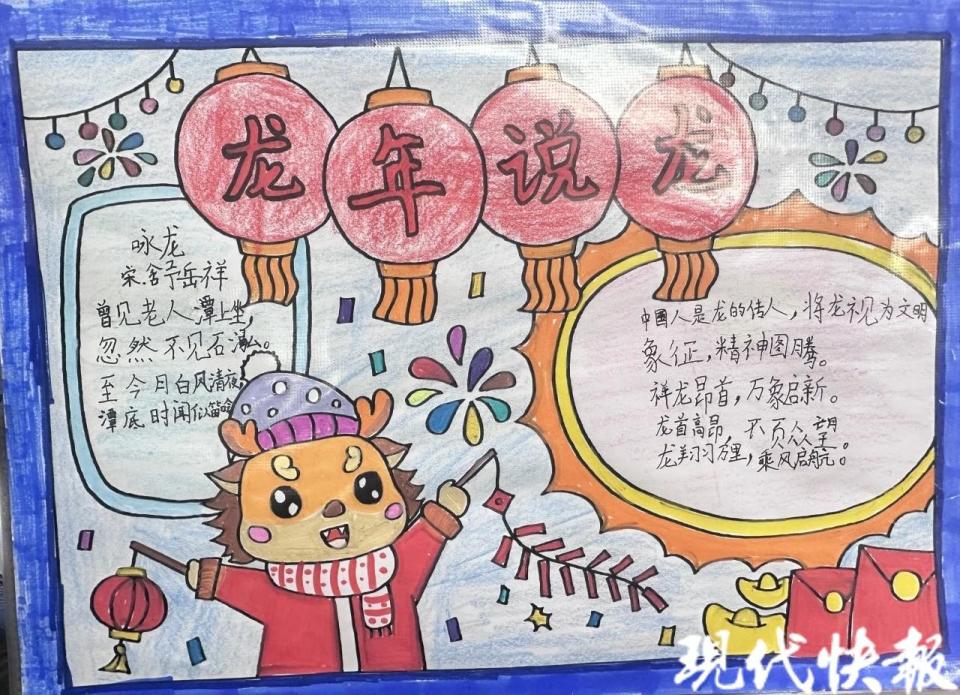 龙年说龙
咏龙
宋.舒岳祥
曾见老人潭上坐,
忽然不见石泓。
至今月白风清夜,
潭底时闻似笛
中國人是龙的传人,将龙视为文明
象征,精神图腾。
祥龙昂首,万象启新。
龙首高昂,不负众望。
龙翔万里,乘风启航。
现代快报